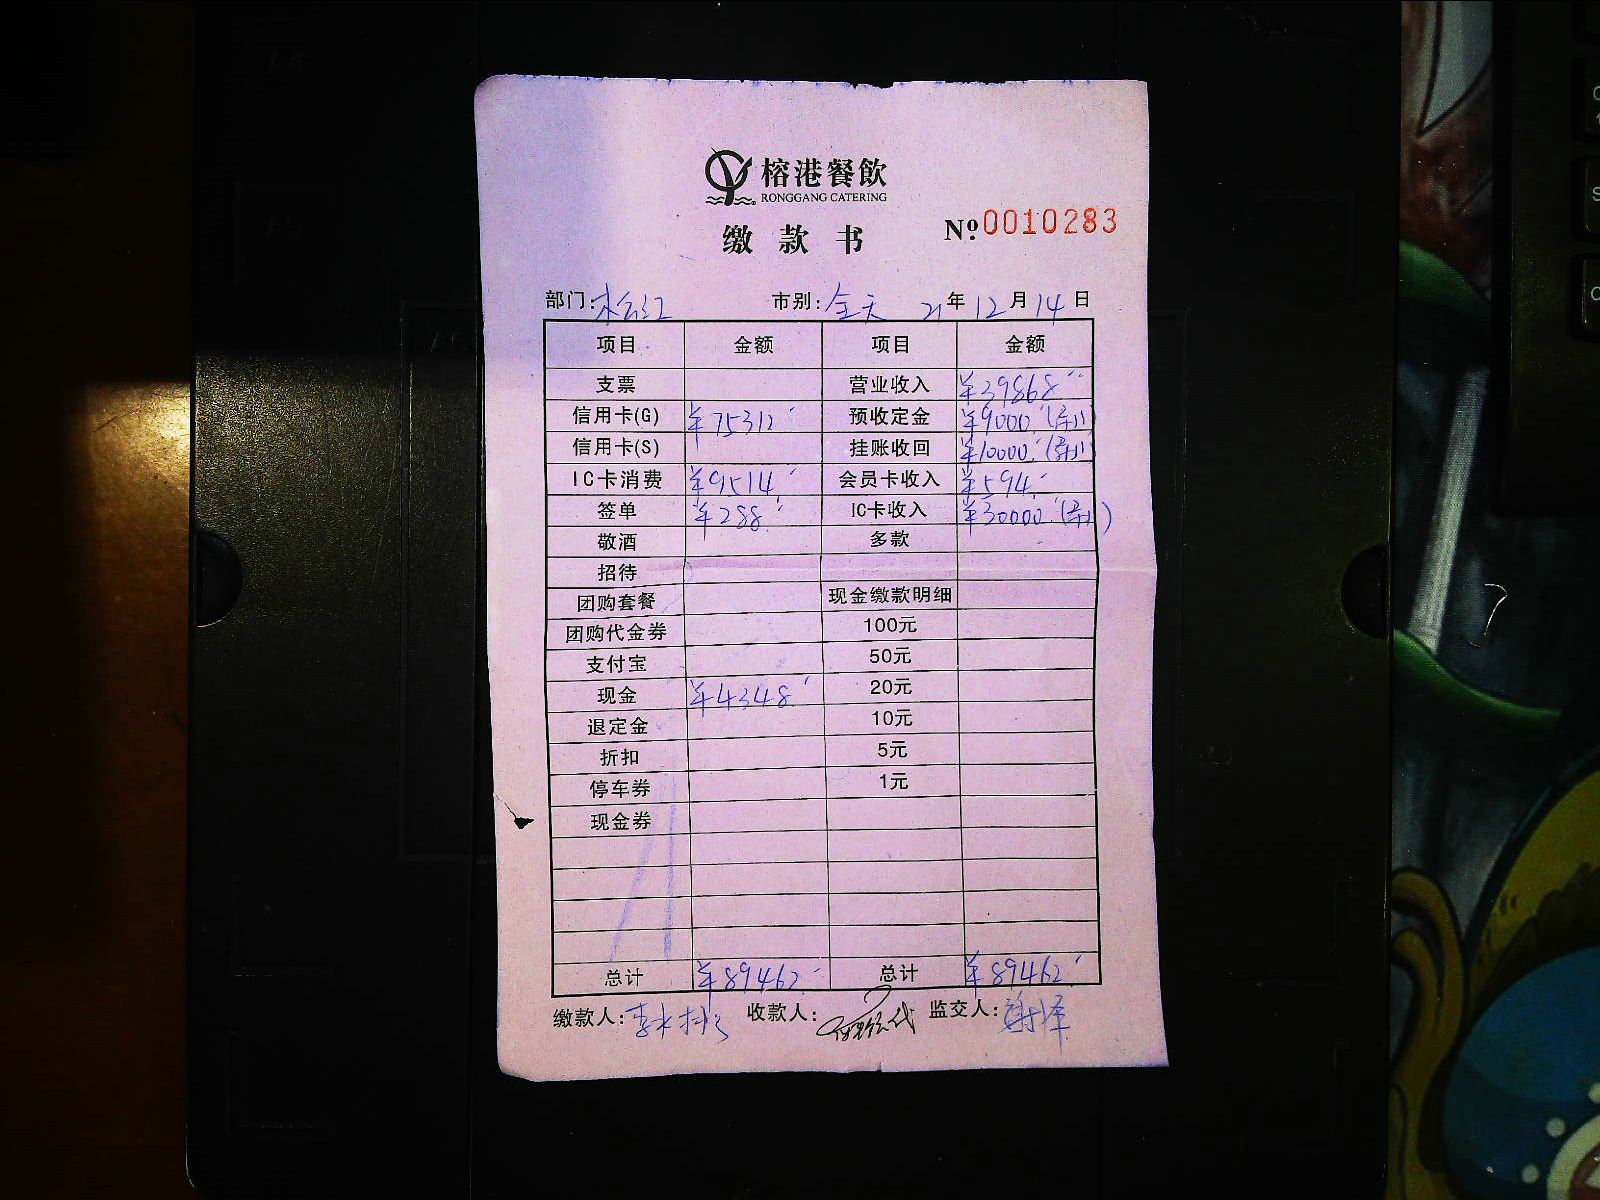 榕港餐飲
RONGGANG CATERING
缴款书 Nº 0010283
部门: 市别:全天 21年12月14日
项目 金额 项目 金额
支票 营业收入 ¥39868
信用卡(G) ¥75312 预收定金 ¥9000
信用卡(S) 挂账收回 ¥10000
IC卡消费 ¥9514 会员卡收入 ¥594
签单 ¥288 IC卡收入 ¥30000
敬酒 多款
招待
团购套餐 现金缴款明细
团购代金券 100元
支付宝 50元
现金 ¥4348 20元
退定金 10元
折扣 5元
停车券 1元
现金券
总计 ¥89462 总计 ¥89462
缴款人: 收款人: 监交人:谢泽